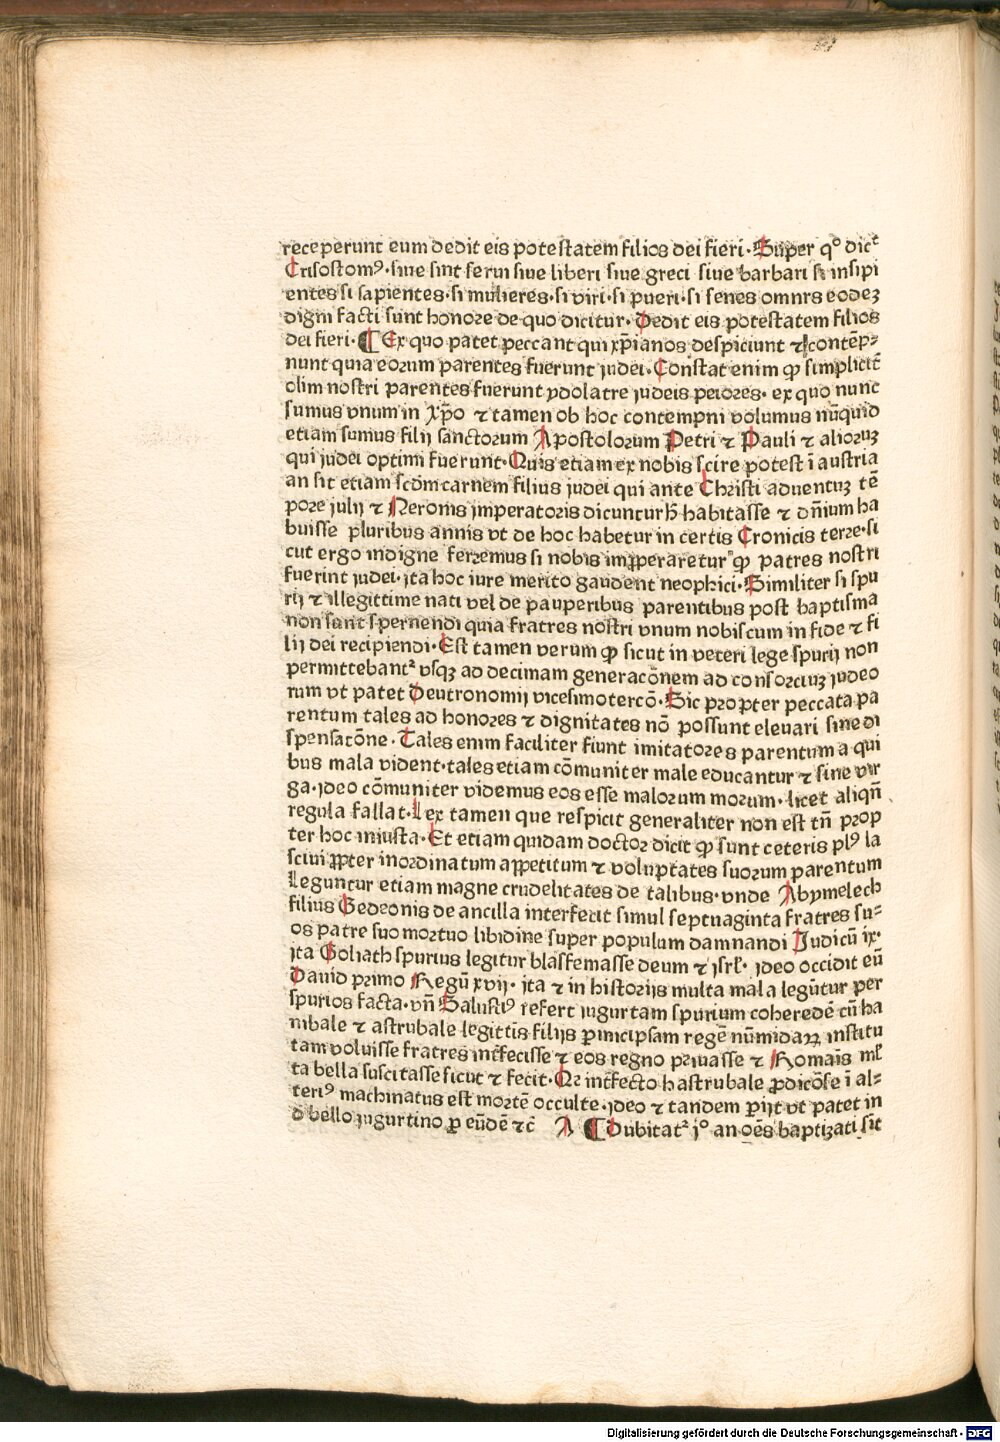 receperunt eum dedit eis potestatem filios dei fieri· Super qº dict̃
Crisostomꝰ· siue sint serui siue liberi siue greci siue barbari si insipi
entes si sapientes· si mulieres· si viri· si pueri· si senes omnrs eodeꝫ
digni facti sunt honore de quo dicitur· Dedit eis potestatem filios
dei fieri· ¶ Ex quo patet peccant qui xp̃ianos despiciunt ⁊ contẽp⸗
nunt quia eorum parentes fuerunt iudei· Constat enim ꝙ simplicit̃
olim nostri parentes fuerunt ydolatre iudeis peiores· ex quo nunc
sumus vnum in xp̃o ⁊ tamen ob hoc contempni volumus nũquid
etiam sumus filij sanctorum Apostolorum Petri ⁊ Pauli ⁊ alioruꝫ
qui iudei optimi fuerunt· Quis etiam ex nobis scire potest ĩ austria
an sit etiam scd̃m carnem filius iudei qui ante Christi aduentuꝫ tẽ
pore iulij ⁊ Neronis imperatoris dicuntur h̃ habitasse ⁊ dñium ha
buisse pluribus annis vt de hoc habetur in certis Cronicis terre· si
cut ergo indigne ferremus si nobis imꝓperaretur ꝙ patres nostri
fuerint iudei· ita hoc iure merito gaudent neophici· Similiter si spu
rij ⁊ illegittime nati vel de pauperibus parentibus post baptisma
non sunt spernendi quia fratres nostri vnum nobiscum in fide ⁊ fi
lij dei recipiendi· Est tamen verum ꝙ sicut in veteri lege spurij non
permittebantᷣ vsqꝫ ad decimam generacõnem ad consorciuꝫ iudeo
rum vt patet Deutronomij vicesimotercõ· Sic propter peccata pa
rentum tales ad honores ⁊ dignitates nõ possunt eleuari sine di
spensacõne· Tales enim faciliter fiunt imitatores parentum a qui
bus mala vident· tales etiam cõmuniter male educantur ⁊ sine vir
ga· ideo cõmuniter videmus eos esse malorum morum· licet aliqñ
regula fallat· Lex tamen que respicit generaliter non est tñ prop
ter hoc iniusta· Et etiam quidam doctor dicit ꝙ sunt ceteris plꝰ la
sciui ꝓpter inordinatum appetitum ⁊ voluptates suorum parentum
Leguntur etiam magne crudelitates de talibus· vnde Abymelech
filius Gedeonis de ancilla interfecit simul septuaginta fratres su⸗
os patre suo mortuo libidine super populum damnandi Judicũ ix·
ita Goliath spurius legitur blasfemasse deum ⁊ isrl̃· ideo occidit eũ
Dauid primo Regũ xvij· ita ⁊ in historijs multa mala legũtur per
spurios facta· vñ Salustiꝰ refert iugurtam spurium coheredẽ cũ ha
nibale ⁊ astrubale legittĩs filijs ꝑ micipsam regẽ nũmidaꝝ institu
tam voluisse fratres int̃fecisse ⁊ eos regno priuasse ⁊ Romaĩs ml̃
ta bella suscitasse sicut ⁊ fecit· Qr int̃fecto hastrubale ꝓdicõse ĩ al⸗
teriꝰ machinatus est mortẽ occulte· ideo ⁊ tandem ꝑijt vt patet in
d̃ bello iugurtino ꝑ eũdẽ ⁊c̃ A ¶ Dubitatᷣ iº an oẽs baptizati sit
Digitalisierung gefördert durch die Deutsche Forschungsgemeinschaft · DFG